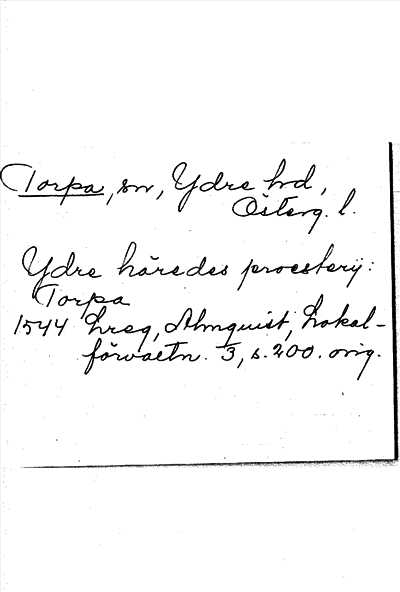 Torpa, sn, Ydre hrd,
Österg. l.
Ydre häredes proesterij:
Torpa
1544 hreg, Almquist, Lokal-
förvaltn. 3, s. 200. orig.